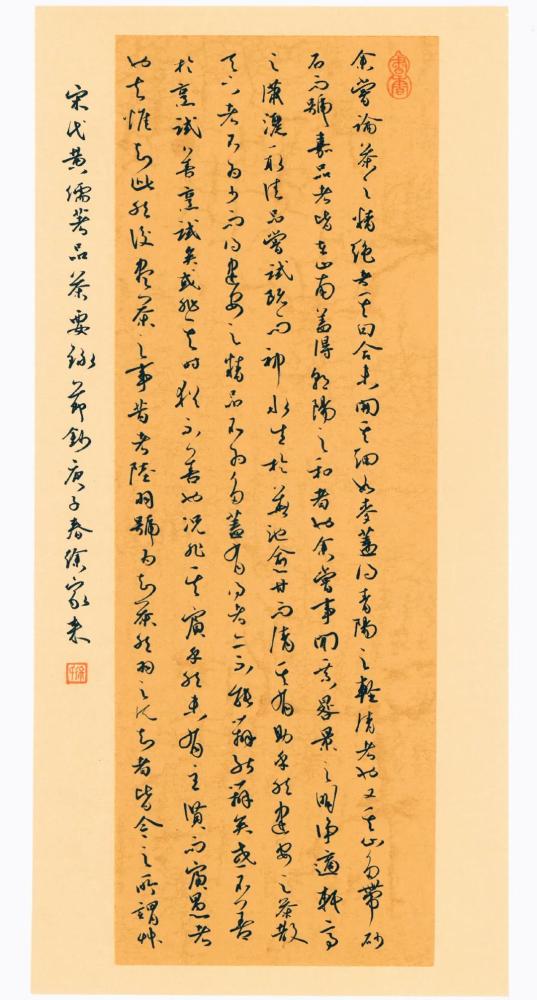 余嘗論茶之精絕者其白合未開其細如麥蓋得青陽之輕清者也又其山多帶砂
石而號嘉品者皆在山南蓋得朝陽之和者也余嘗事閑乘晷景之明淨適軒亭
之瀟灑一取佳品嘗試既而神水生於華池愈甘而清其有助乎然建安之茶散
天下者不為少而得建安之精品不為多蓋有得者不能辨能辨矣或不善
於烹試善烹試矣或非其時猶不善也況非其賓乎然未有主賢而賓愚者
也夫惟知此然後盡茶之事昔者陸羽號為知茶然羽之所知者皆今之所謂草
宋代黃儒著品茶要錄節鈔庚子春徐家